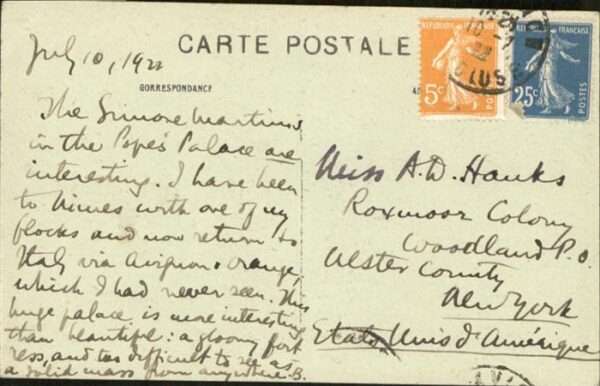 July 10, 1922
CARTE POSTALE
CORRESPONDANCE
RÉPUBLIQUE FRANÇAISE
5c
25c
POSTES
The Simone Martinis
in the Pope's Palace are
interesting. I have been
to Nimes with one of my
flocks and now return to
Italy via Avignon & Orange,
which I had never seen. This
huge palace is more interesting
than beautiful: a gloomy fort
ress, and too difficult to see as
a solid mass from anywhere. B.
Miss A.D. Hanks
Roxmoor Colony
Woodland P.O.
Ulster County
New York
Etats Unis d'Amérique